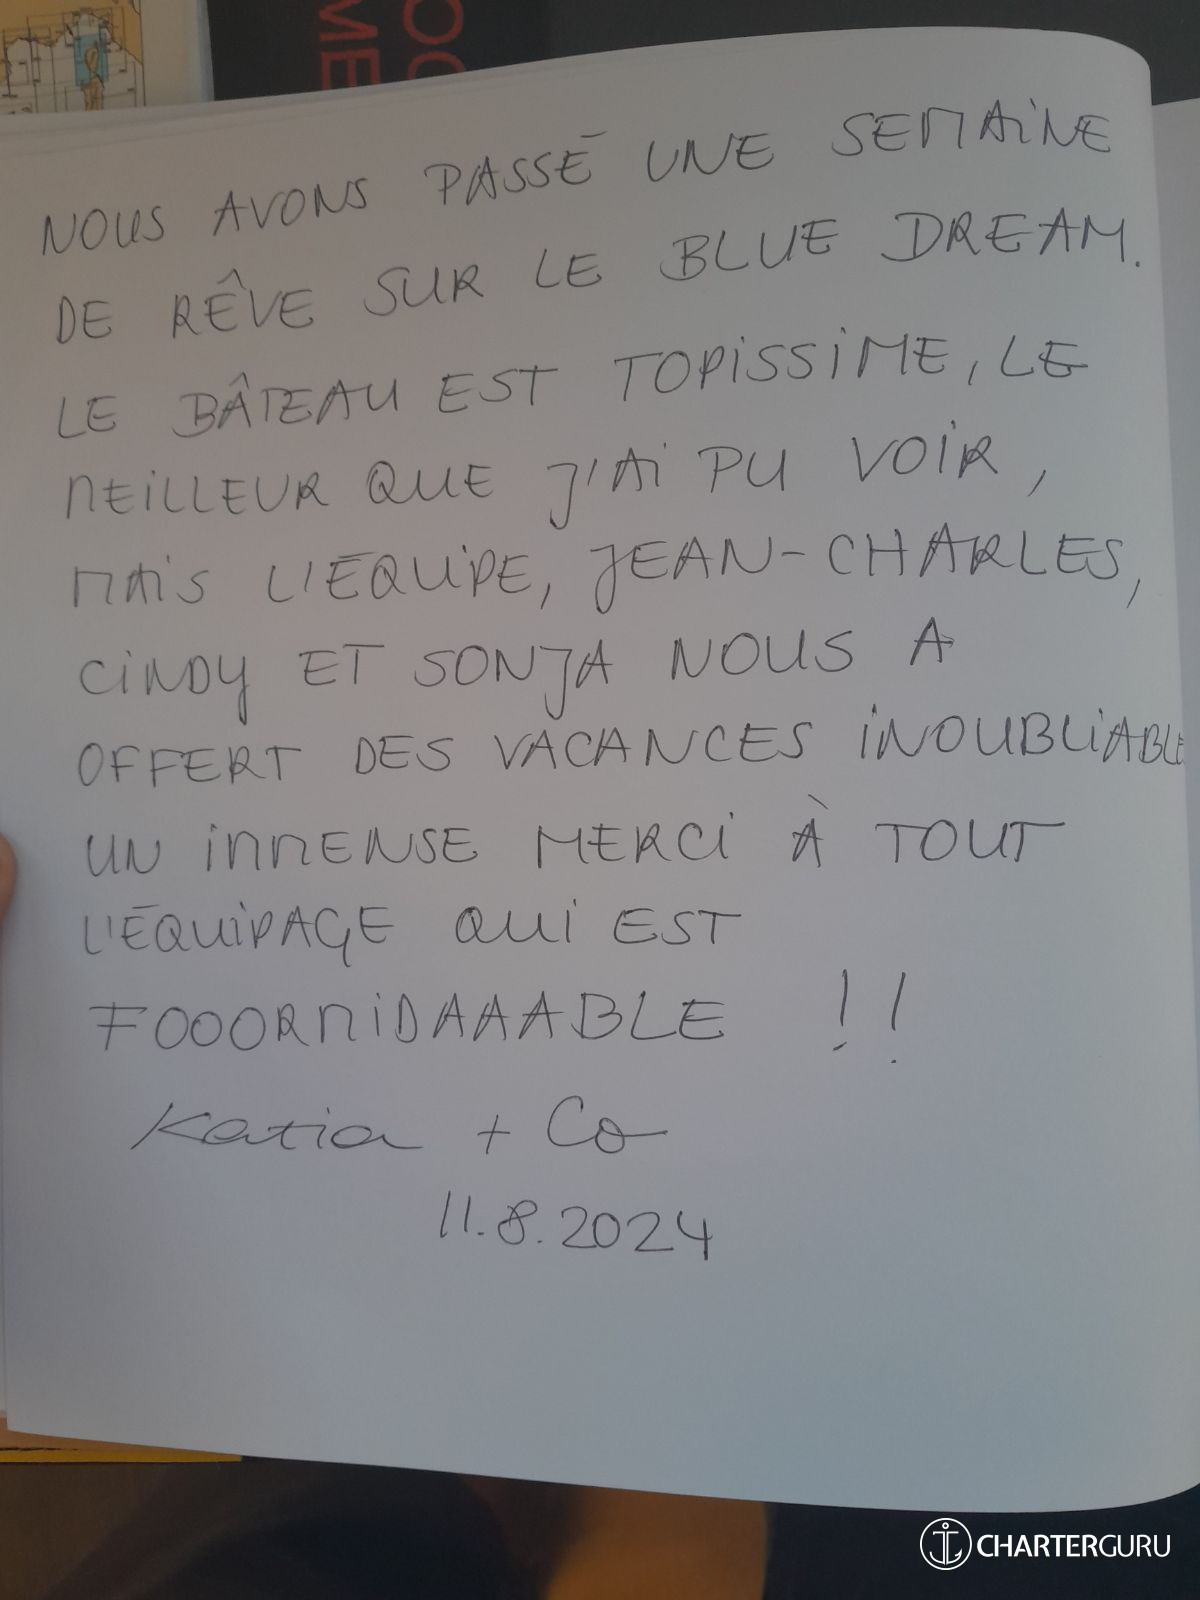 OC
ME
NOUS AVONS PASSÉ UNE SEMAINE
DE RÊVE SUR LE BLUE DREAM.
LE BÂTEAU EST TOPISSIME, LE
MEILLEUR QUE J'AI PU VOIR,
MAIS L'ÉQUIPE, JEAN-CHARLES,
CINDY ET SONJA NOUS A
OFFERT DES VACANCES INOUBLIABLE
UN IMMENSE MERCI À TOUT
L'ÉQUIPAGE QUI EST
FOOORMIDAAABLE !!
Katia + Co
11.8.2024
CHARTERGURU